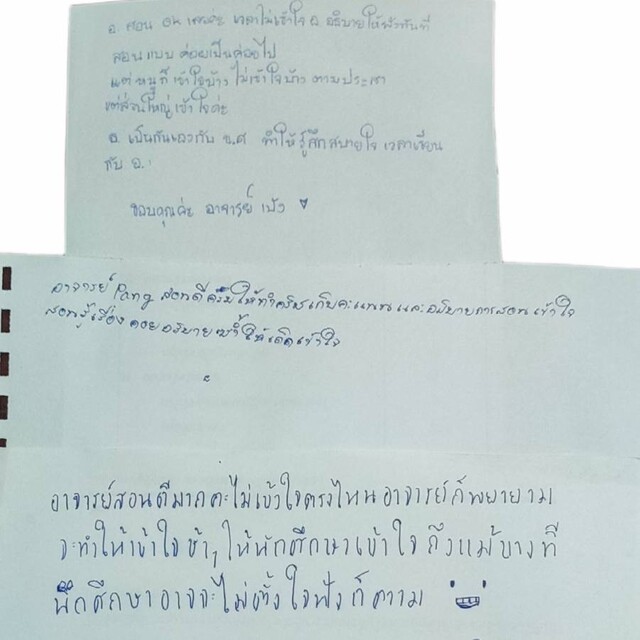 อ. สอน ok เลยค่ะ เวลาไม่เข้าใจ อ. อธิบายให้ฟังทันที
สอนแบบ ค่อยเป็นค่อยไป
แต่หนูก็ เข้าใจบ้าง ไม่เข้าใจบ้าง ตามประสา
แต่ส่วนใหญ่เข้าใจค่ะ
อ. เป็นกันเองกับ น.ศ. ทำให้รู้สึกสบายใจ เวลาเรียน
กับ อ.
ขอบคุณค่ะ อาจารย์ แป้ง
อาจารย์ Pang สอนดีครับ ให้ทำควิซเก็บคะแนน และอธิบายการสอนเข้าใจ
สอนรู้เรื่อง คอยอธิบายซ้ำให้เด็กเข้าใจ
อาจารย์สอนดีมากค่ะไม่เข้าใจตรงไหนอาจารย์ก็พยายาม
จะทำให้เข้าใจ ช้าๆ ให้นักศึกษาเข้าใจ ถึงแม้บางที
นักศึกษาอาจจะไม่ตั้งใจฟังก็ตาม